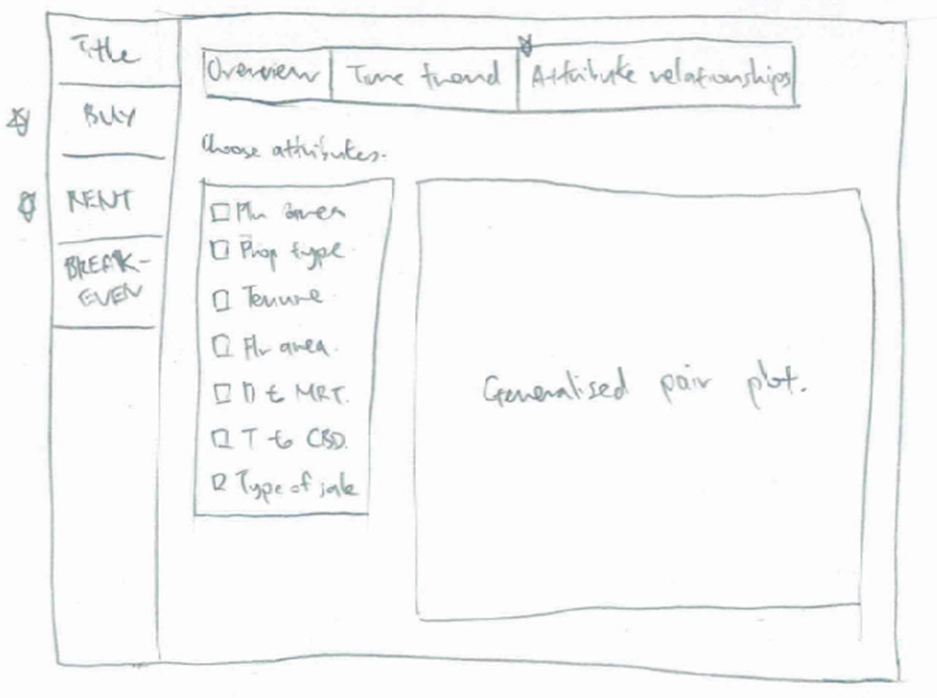 Title
BUY
RENT
BREAK-
EVEN
Overview
Time trend
Attribute relationships
Choose attributes.
Pln area
Prop type
Tenure
Flr area.
D to MRT.
T to CBD.
Type of sale
Generalised pair plot.